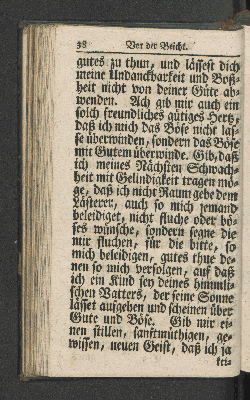 38 Vor der Beicht.
gutes zu thun, und lässest dich
meine Undanckbarkeit und Boß-
heit nicht von deiner Güte ab-
wenden. Ach gib mir auch ein
solch freundliches gütiges Hertz,
daß ich mich das Böse nicht las-
se überwinden, sondern das Böse
mit Gutem überwinde. Gib, daß
ich meines Nächsten Schwach-
heit mit Gelindigkeit tragen mö-
ge, daß ich nicht Raum gebe dem
Lästerer, auch so mich jemand
beleidiget, nicht fluche oder bö-
ses wünsche, sondern segne die
mir fluchen, für die bitte, so
mich beleidigen, gutes thue de-
nen so mich verfolgen, auf daß
ich ein Kind sey deines himmli-
schen Vatters, der seine Sonne
lässet aufgehen und scheinen über
Gute und Böse. Gib mir ei-
nen stillen, sanftmüthigen, ge-
wissen, neuen Geist, daß ich ja